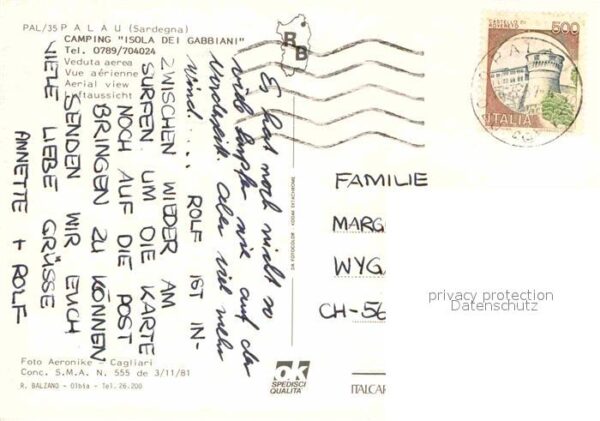 PAL/35 PALAU (Sardegna)
CAMPING "ISOLA DEI GABBIANI"
Tel. 0789/704024
Veduta aerea
Vue aérienne
Aerial view
Luftaussicht
R B
Es hat noch nicht so
viele Surfer wie auf der
Vorderseite. Aber viel mehr
Wind.... ROLF IST IN-
ZWISCHEN WIEDER AM
SURFEN. UM DIE KARTE
NOCH AUF DIE POST
BRINGEN ZU KÖNNEN
SENDEN WIR EUCH
VIELE LIEBE GRÜSSE
ANNETTE + ROLF
DA FOTOCOLOR KODAK EKTACHROME
CASTELLO DI
ROVERETO
500
ITALIA
FAMILIE
MARG
WYG
CH-56
privacy protection
Datenschutz
Foto Aeronike - Cagliari
Conc. S.M.A. N. 555 de 3/11/81
R. BALZANO - Olbia - Tel. 26.200
ok
SPEDISCI
QUALITA'
ITALCAR